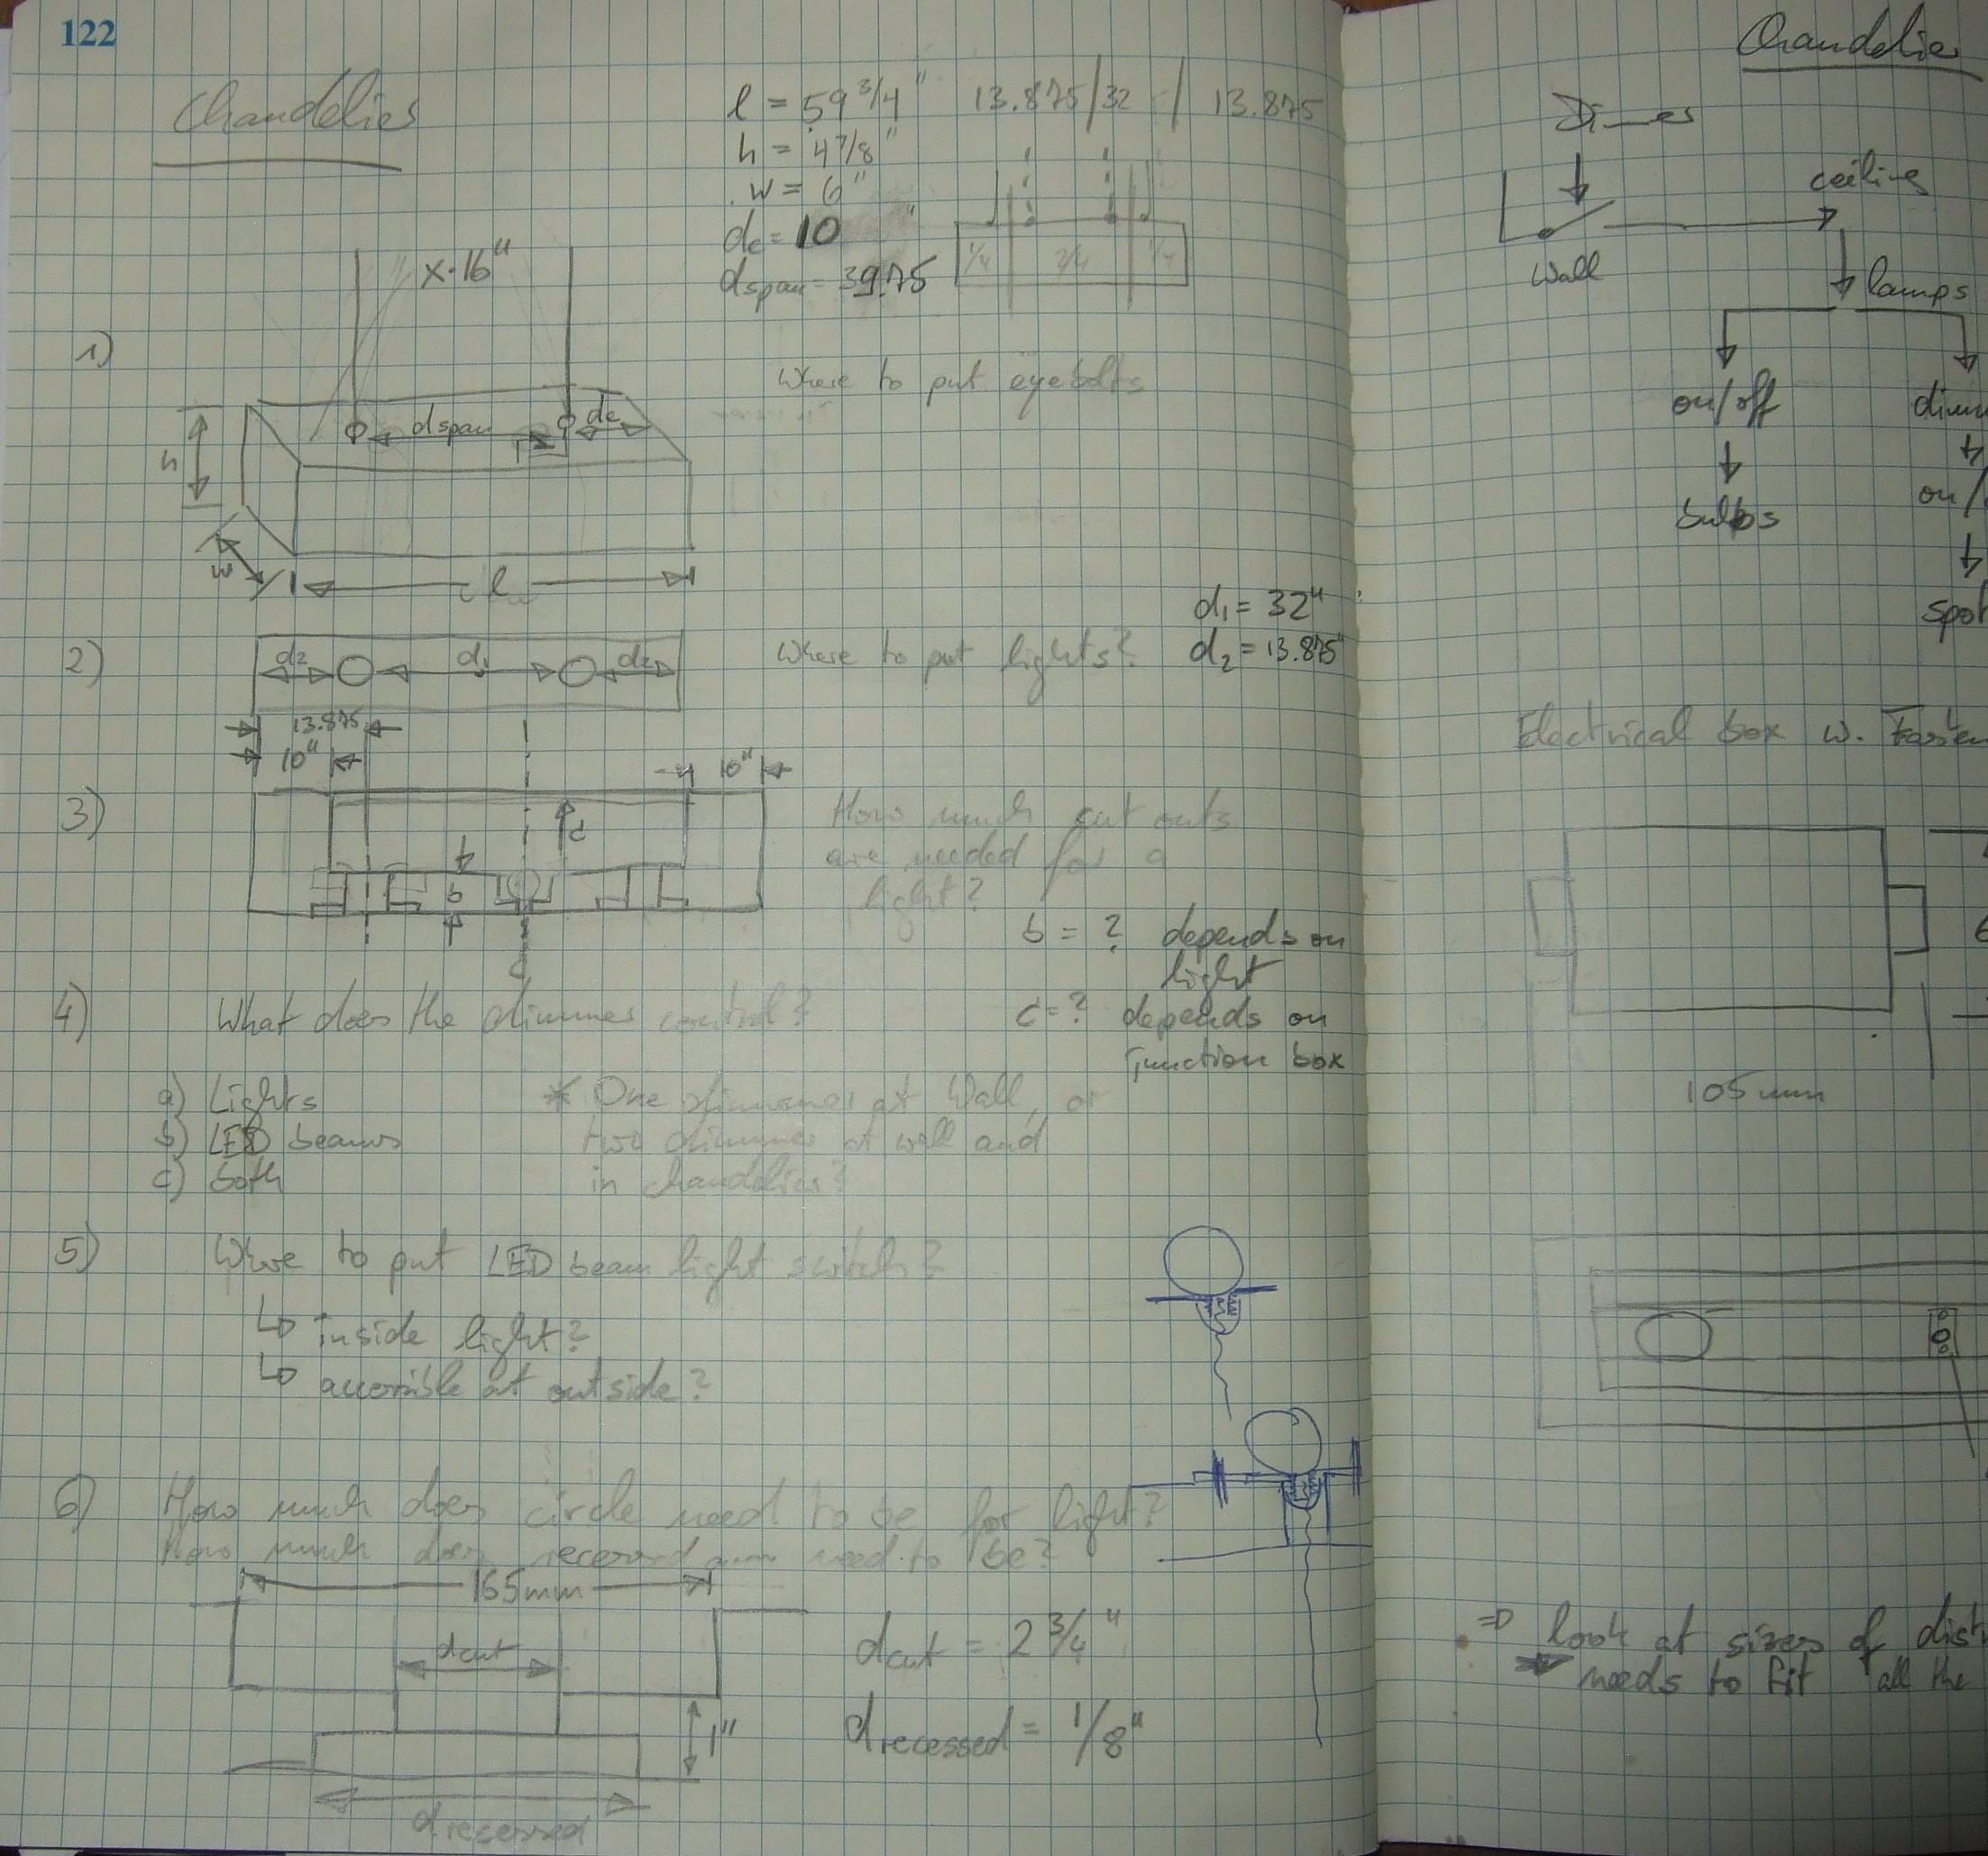 122
Chandelier
l = 59 3/4" 13.875/32 / 13.875
h = 4 7/8"
w = 6"
de = 10 "
dspan = 39.75
1/4 2/4 1/4
x·16"
1)
Where to put eyebolts
dspan de
h
w
l
d1 = 32"
2)
d2 d1 d2
Where to put lights? d2 = 13.875"
13.875
10" 10"
3)
c
b
How much cut outs
are needed for a
light?
b = ? depends on
light
c = ? depends on
junction box
4) What does the dimmer control?
a) Lights
b) LED beams
c) both
* One dimmer at Wall, or
two dimmer at wall and
in chandelier?
5) Where to put LED beam light switch?
↳ inside light?
↳ accessible at outside?
6) How much does circle need to be for light?
How much does recessed need to be?
165mm
dcut
1"
drecessed
dcut = 2 3/4"
drecessed = 1/8"
Chandelie
Dimmer
ceiling
Wall
lamps
on/off dimm
bulbs on/
spot
Electrical box w. Fasten
105mm
⇒ look at sizes of dist
needs to fit all the